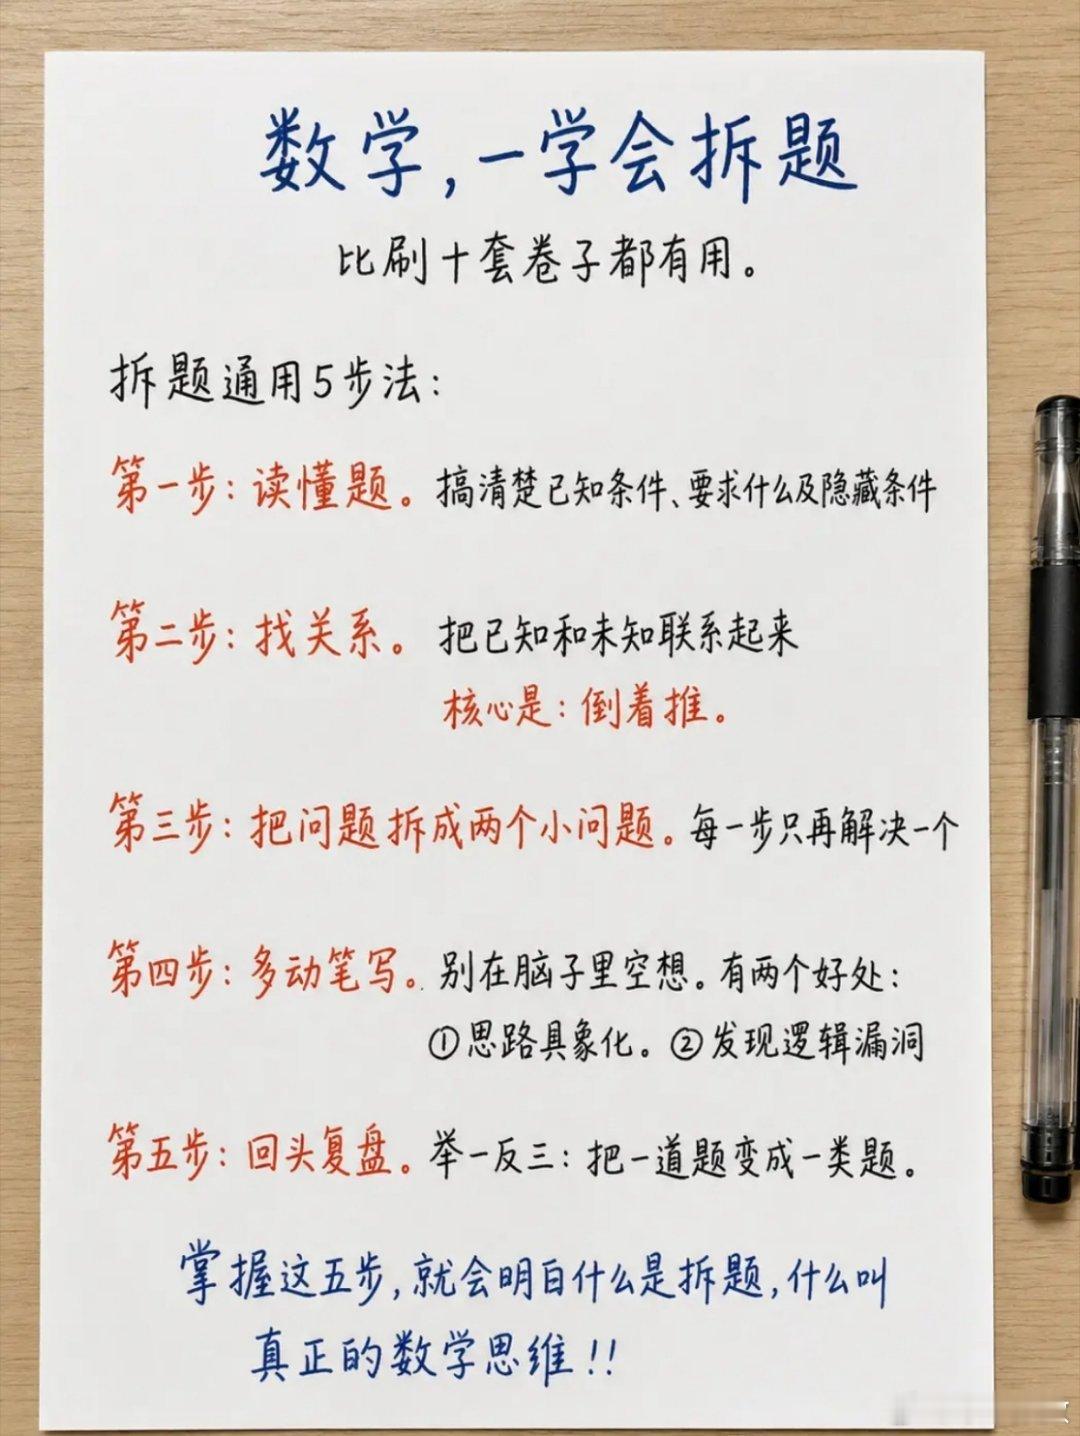 数学,一学会拆题
比刷十套卷子都有用。
拆题通用5步法:
第一步:读懂题。搞清楚已知条件、要求什么及隐藏条件
第二步:找关系。把已知和未知联系起来
核心是:倒着推。
第三步:把问题拆成两个小问题。每一步只再解决一个
第四步:多动笔写。别在脑子里空想。有两个好处:
①思路具象化。②发现逻辑漏洞
第五步:回头复盘。举一反三:把一道题变成一类题。
掌握这五步,就会明白什么是拆题,什么叫
真正的数学思维!!